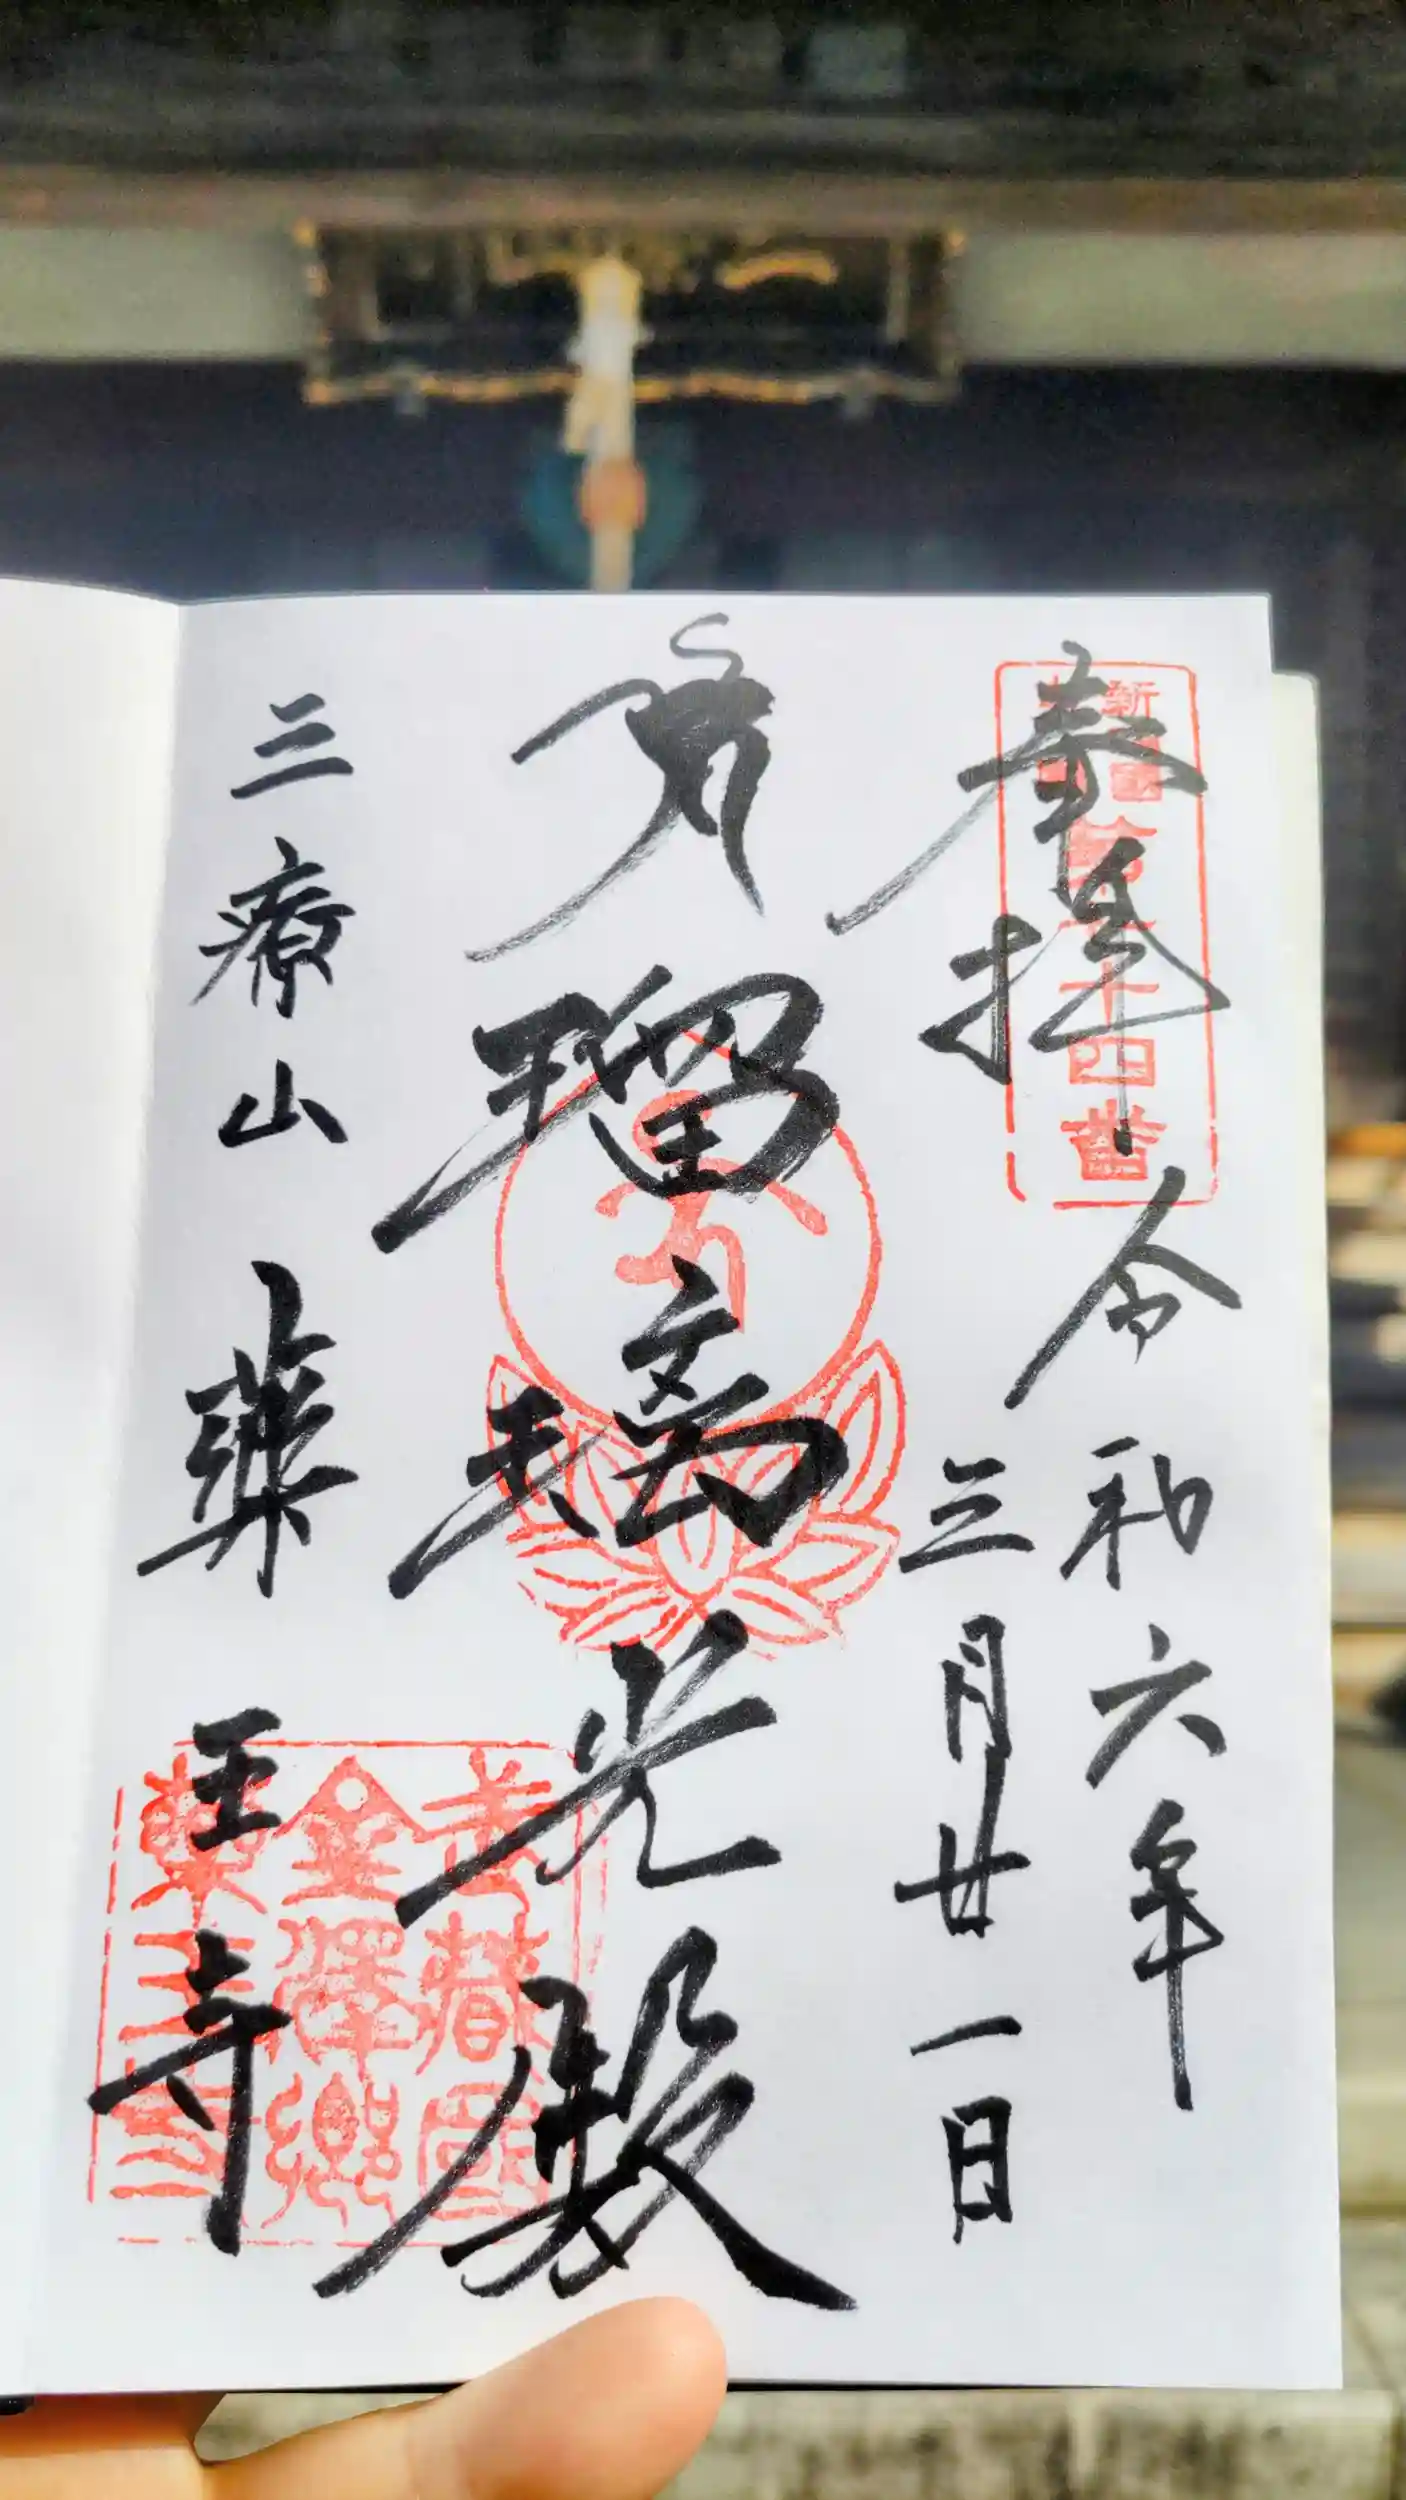 奉拝
令和六年
三月廿一日
瑠璃光殿
三療山 薬王寺